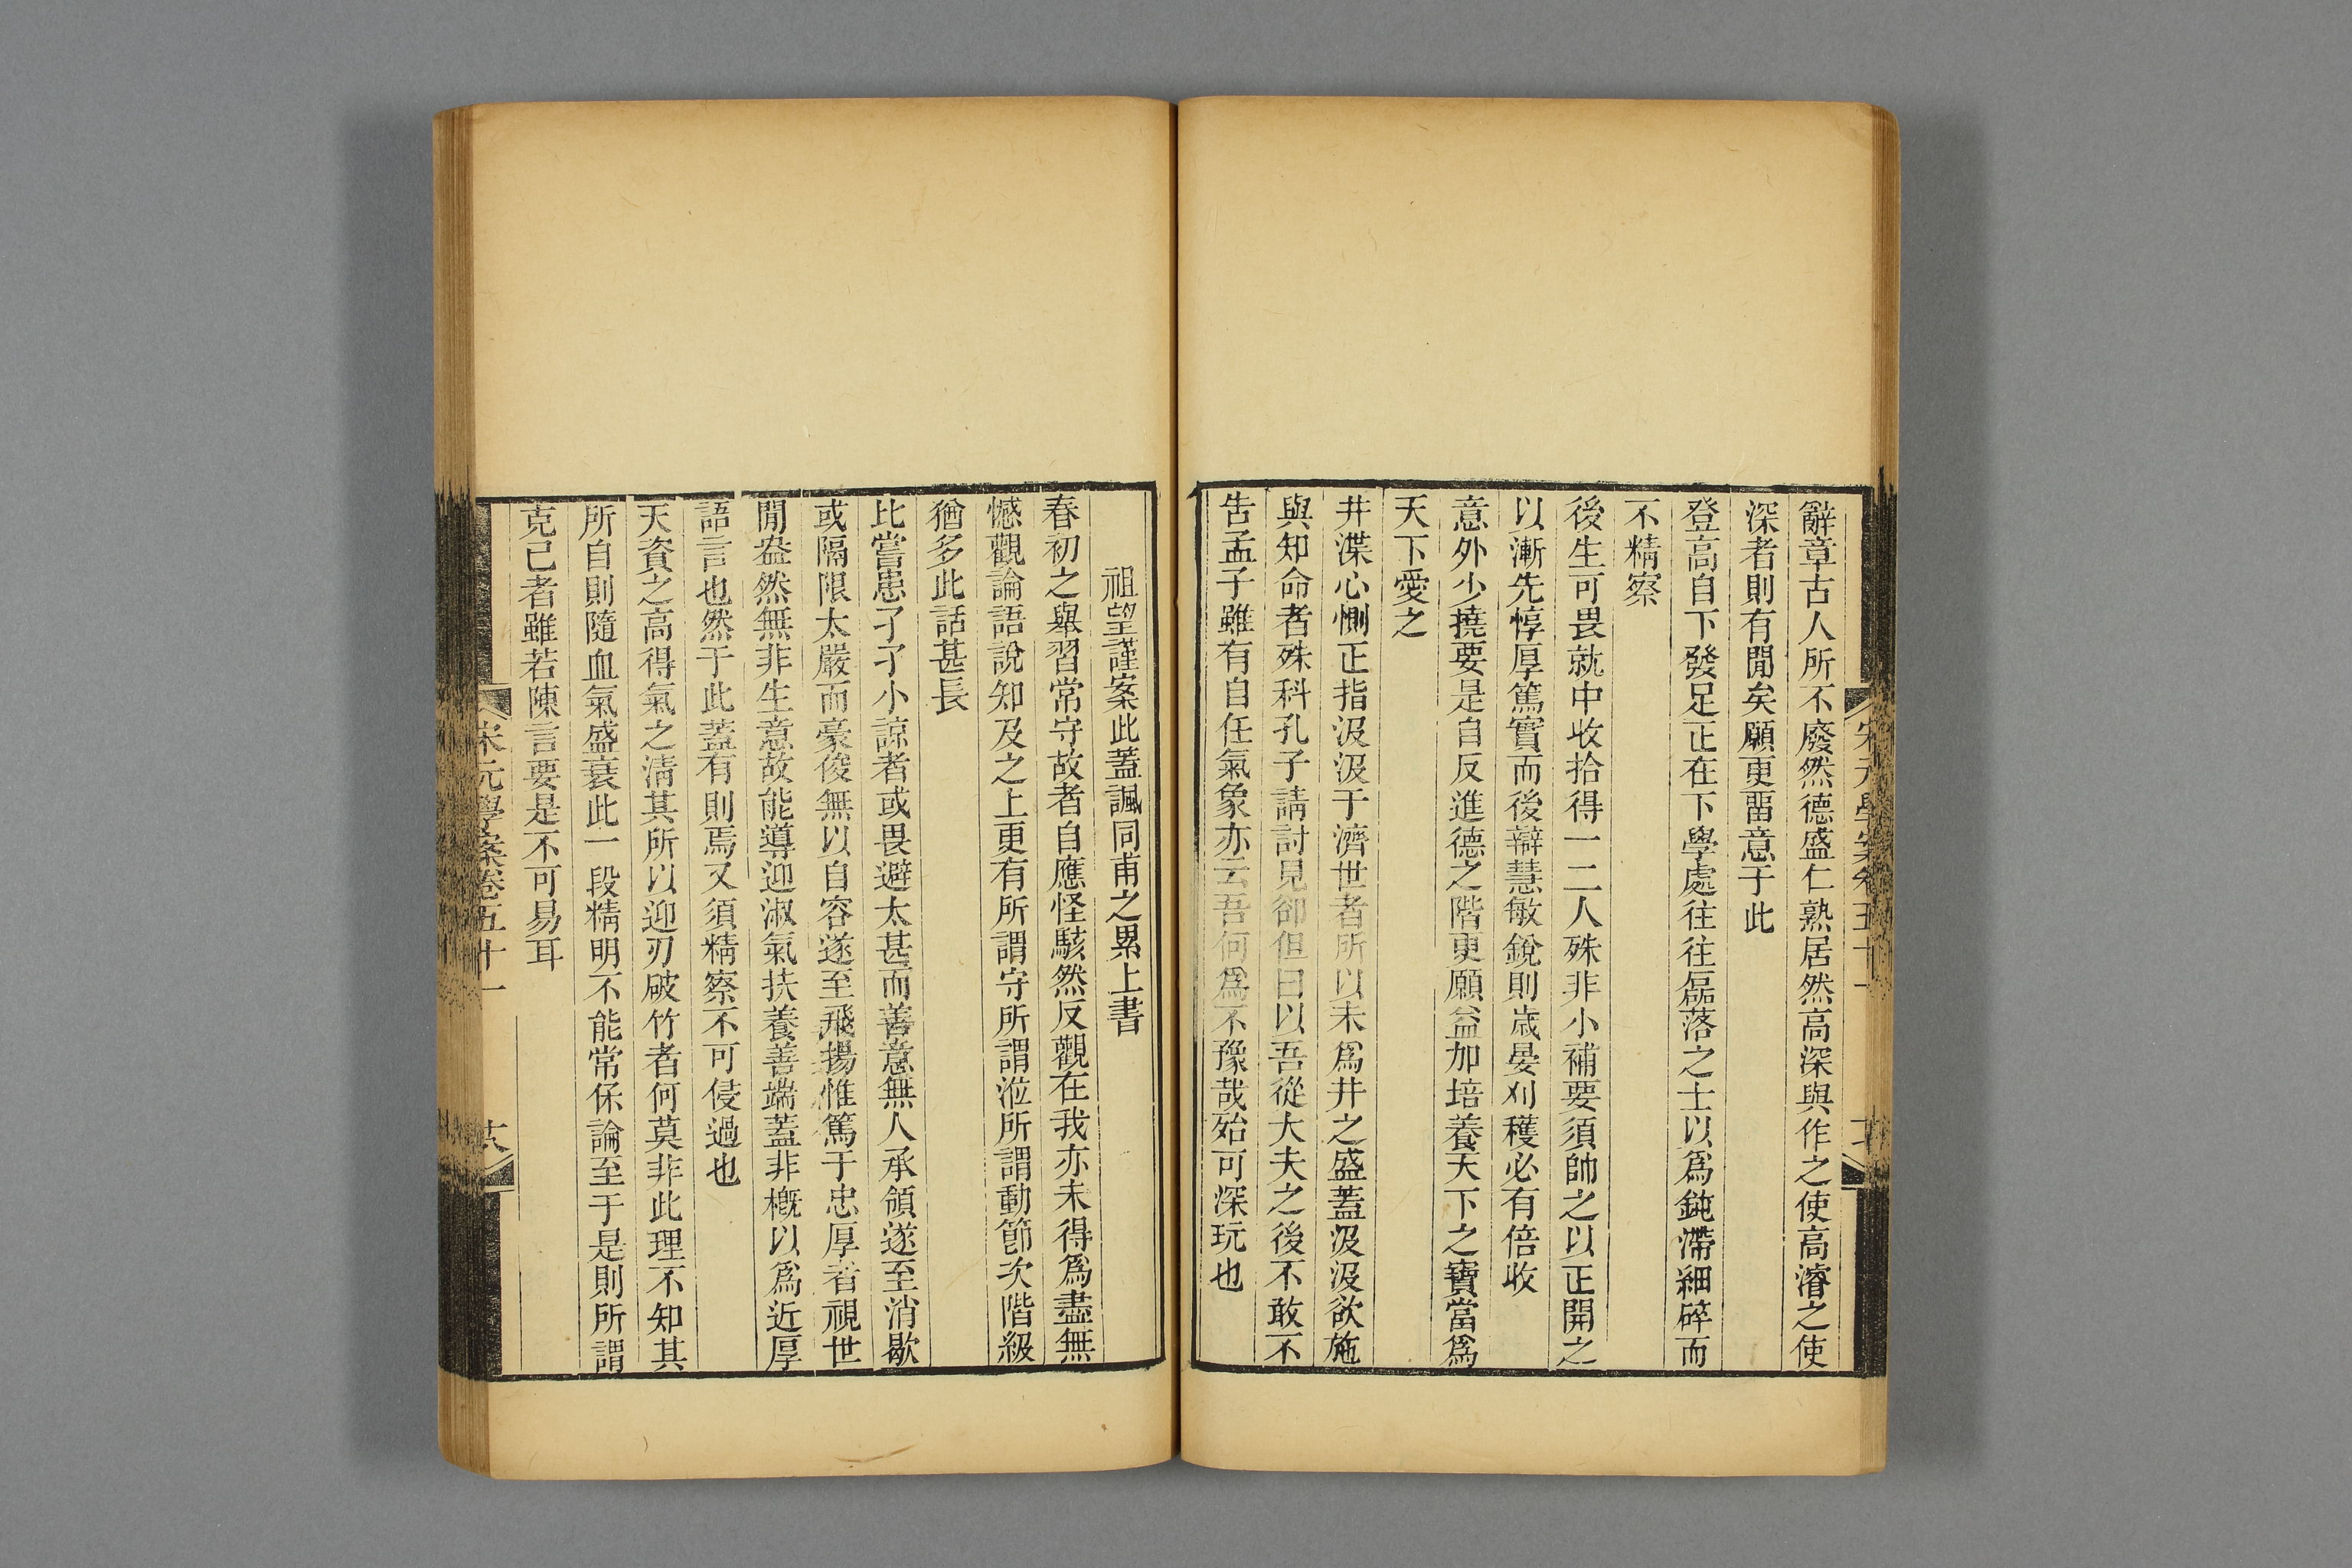 辭章古人所不廢然德盛仁熟居然高深與作之使高濬之使
深者則有閒矣願更畱意于此
登高自下發足正在下學處往往磊落之士以爲鈍滯細碎而
不精察
後生可畏就中收拾得一二人殊非小補要須帥之以正開之
以漸先惇厚篤實而後辯慧敏銳則歲晏刈穫必有倍收
意外少撓要是自反進德之階更願益加培養天下之寶當爲
天下愛之
井渫心惻正指汲汲于濟世者所以未爲井之盛蓋汲汲欲施
與知命者殊科孔子請討見卻但曰以吾從大夫之後不敢不
告孟子雖有自任氣象亦云吾何爲不豫哉殆可深玩也
祖望謹案此蓋諷同甫之累上書
春初之舉習常守故者自應怪駭然反觀在我亦未得爲盡無
憾觀論語說知及之上更有所謂守所謂涖所謂動節次階級
猶多此話甚長
比嘗患孑孑小諒者或畏避太甚而善意無人承領遂至消歇
或隔限太嚴而豪俊無以自容遂至飛揚惟篤于忠厚者視世
閒盎然無非生意故能導迎淑氣扶養善端蓋非槪以爲近厚
語言也然于此蓋有則焉又須精察不可侵過也
天資之高得氣之淸其所以迎刃破竹者何莫非此理不知其
所自則隨血氣盛衰此一段精明不能常保論至于是則所謂
克己者雖若陳言要是不可易耳
宋元學案卷五十一